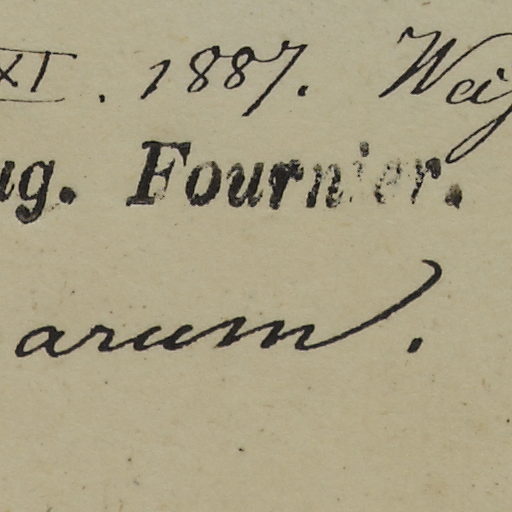 XI. 1887. Weiß
ug. Fournier.
arum.